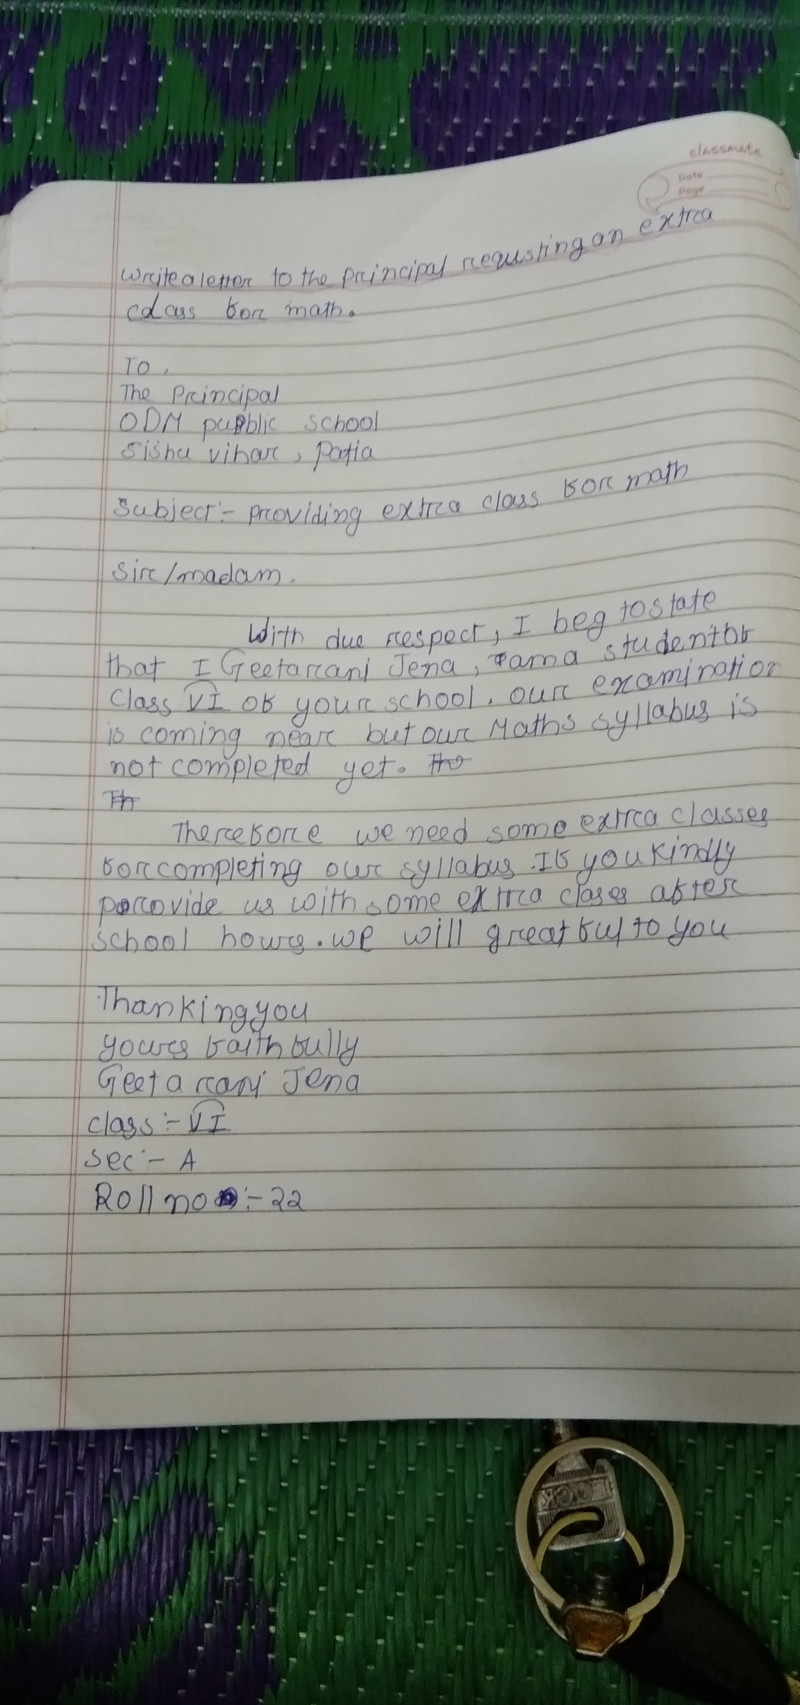 classmate
Date
Page
Write a letter to the principal requsting an extra
cdass for math.
To,
The Principal
ODM public school
Sishu vihar, Patia
Subject:- Providing extra class for math
Sir/madam.
With due respect, I beg to state
that I Geetarani Jena, I am a student of
Class VI of your school. Our examination
is coming near but our Maths syllabus is
not completed yet. Tho
Th
Therefore we need some extra classes
for completing our syllabus. If you kindly
provide us with some extra clases after
school hours. we will greatful to you
Thanking you
yours faithfully
Geeta rani Jena
class:- VI
Sec:- A
Roll no:- 22